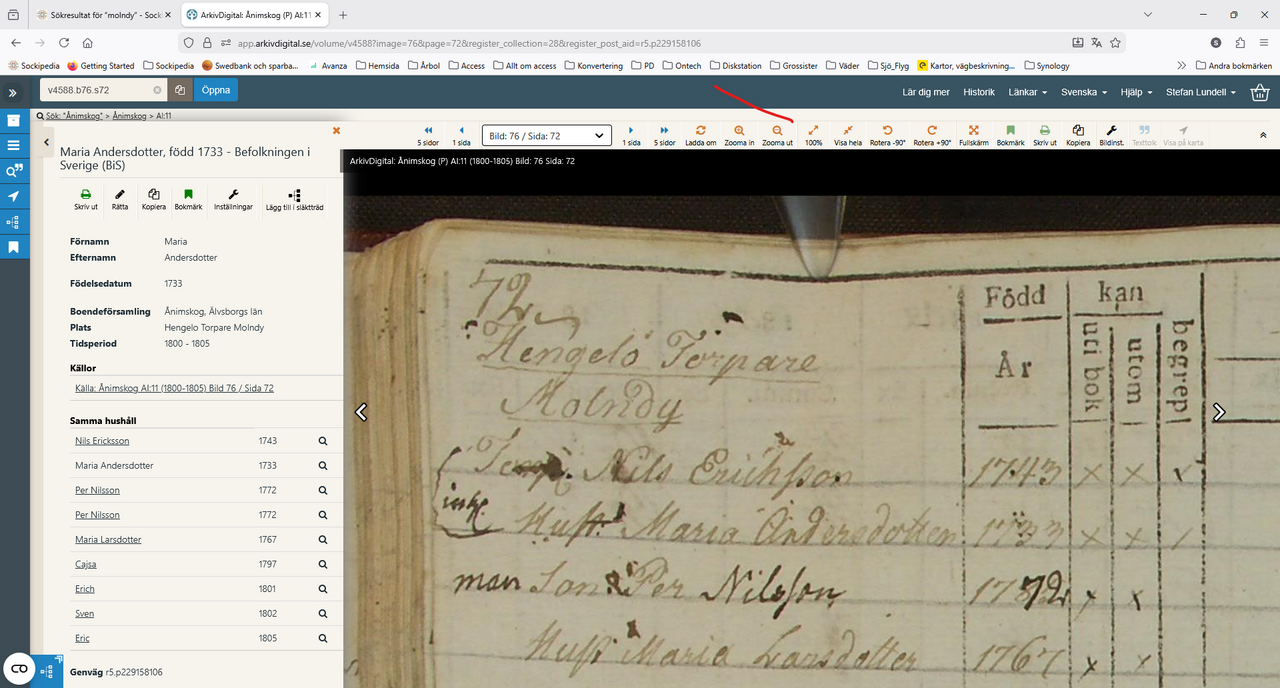 Sökresultat för "molndy" - Sock
ArkivDigital: Ånimskog (P) AI:11
app.arkivdigital.se/volume/v4588?image=76&page=72&register_collection=28&register_post_aid=r5.p229158106
Sockipedia Getting Started Sockipedia Swedbank och sparba... Avanza Hemsida Årbol Access Allt om access Konvertering PD Ontech Diskstation Grossister Väder Sjö_Flyg Kartor, vägbeskrivning... Synology Andra bokmärken
v4588.b76.s72 Öppna Lär dig mer Historik Länkar Svenska Hjälp Stefan Lundell
Sök: "Ånimskog" > Ånimskog > AI:11
5 sidor 1 sida Bild: 76 / Sida: 72 1 sida 5 sidor Ladda om Zooma in Zooma ut 100% Visa hela Rotera -90° Rotera +90° Fullskärm Bokmärk Skriv ut Kopiera Bildinst. Texttolk Visa på karta
Maria Andersdotter, född 1733 - Befolkningen i
Sverige (BiS)
Skriv ut Rätta Kopiera Bokmärk Inställningar Lägg till i släktträd
Förnamn Maria
Efternamn Andersdotter
Födelsedatum 1733
Boendeförsamling Ånimskog, Älvsborgs län
Plats Hengelo Torpare Molndy
Tidsperiod 1800 - 1805
Källor
Källa: Ånimskog AI:11 (1800-1805) Bild 76 / Sida 72
Samma hushåll
Nils Ericksson 1743
Maria Andersdotter 1733
Per Nilsson 1772
Per Nilsson 1772
Maria Larsdotter 1767
Cajsa 1797
Erich 1801
Sven 1802
Eric 1805
Genväg r5.p229158106
ArkivDigital: Ånimskog (P) AI:11 (1800-1805) Bild: 76 Sida: 72
72
Född kan begrep
År uti bok utom
Hengelö Torpare
Molndy
Nils Erichsson 1743
inh. Hust. Maria Andersdotter 1733
man Son Per Nilsson 1772
Hust Maria Larsdotter 1767